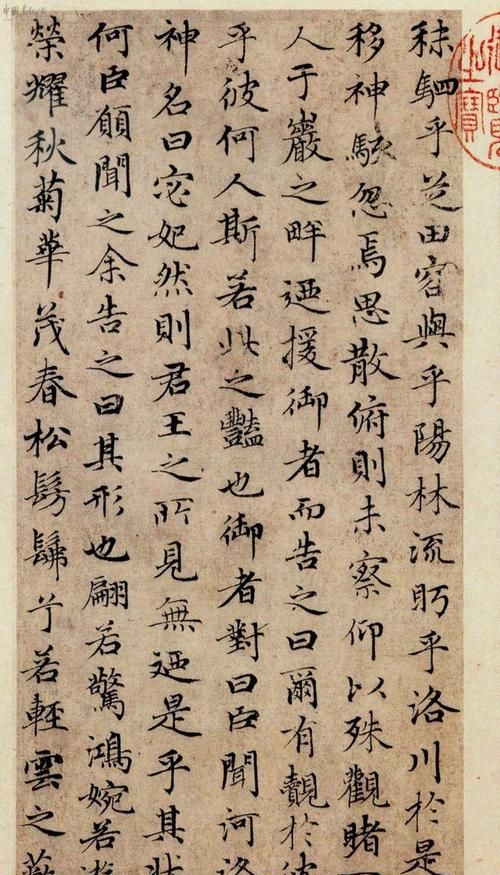 秣駟乎芝田容與乎陽林流眄乎洛川於是
移神駭忽焉思散俯則未察仰以殊觀睹
人于巖之畔迺援御者而告之曰爾有覿於彼
乎彼何人斯若此之豔也御者對曰臣聞河洛
神名曰宓妃然則君王之所見無迺是乎其狀
何臣願聞之余告之曰其形也翩若驚鴻婉若游
榮耀秋菊華茂春松髣髴兮若輕雲之蔽